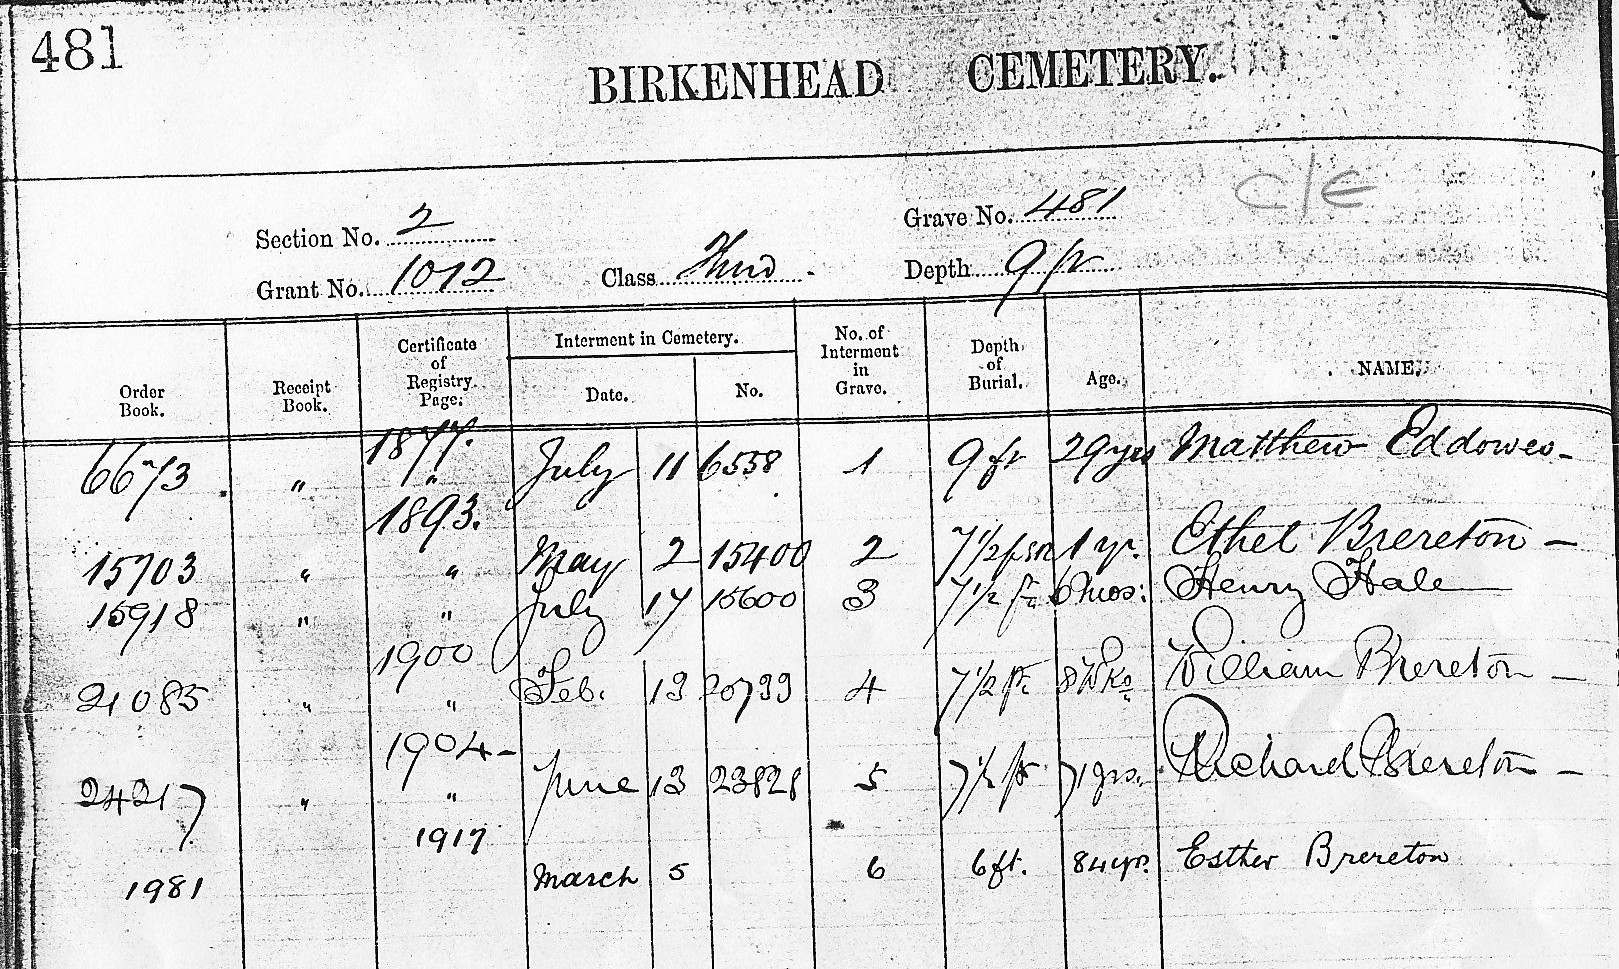 481
BIRKENHEAD CEMETERY.
C/E
Section No. 2 Grave No. 481
Grant No. 1072 Class Third Depth 9 ft
Order Book. Receipt Book. Certificate of Registry Page. Interment in Cemetery. Date. No. No. of Interment in Grave. Depth of Burial. Age. NAME.
1877.
6673 " " July 11 6558 1 9 ft 29 yrs Matthew Eddowes -
1893.
15703 " " May 2 15400 2 7 1/2 1 yr. Ethel Brereton -
15918 " " July 17 15600 3 7 1/2 ft 6 mos: Henry Hale
1900
21085 " " Feb. 13 20799 4 7 1/2 ft. 8 Wks William Brereton -
1904 -
24217 " " June 13 23828 5 7 1/2 ft 71 yrs. Richard Brereton -
1917
1981 March 5 6 6 ft. 84 yrs. Esther Brereton